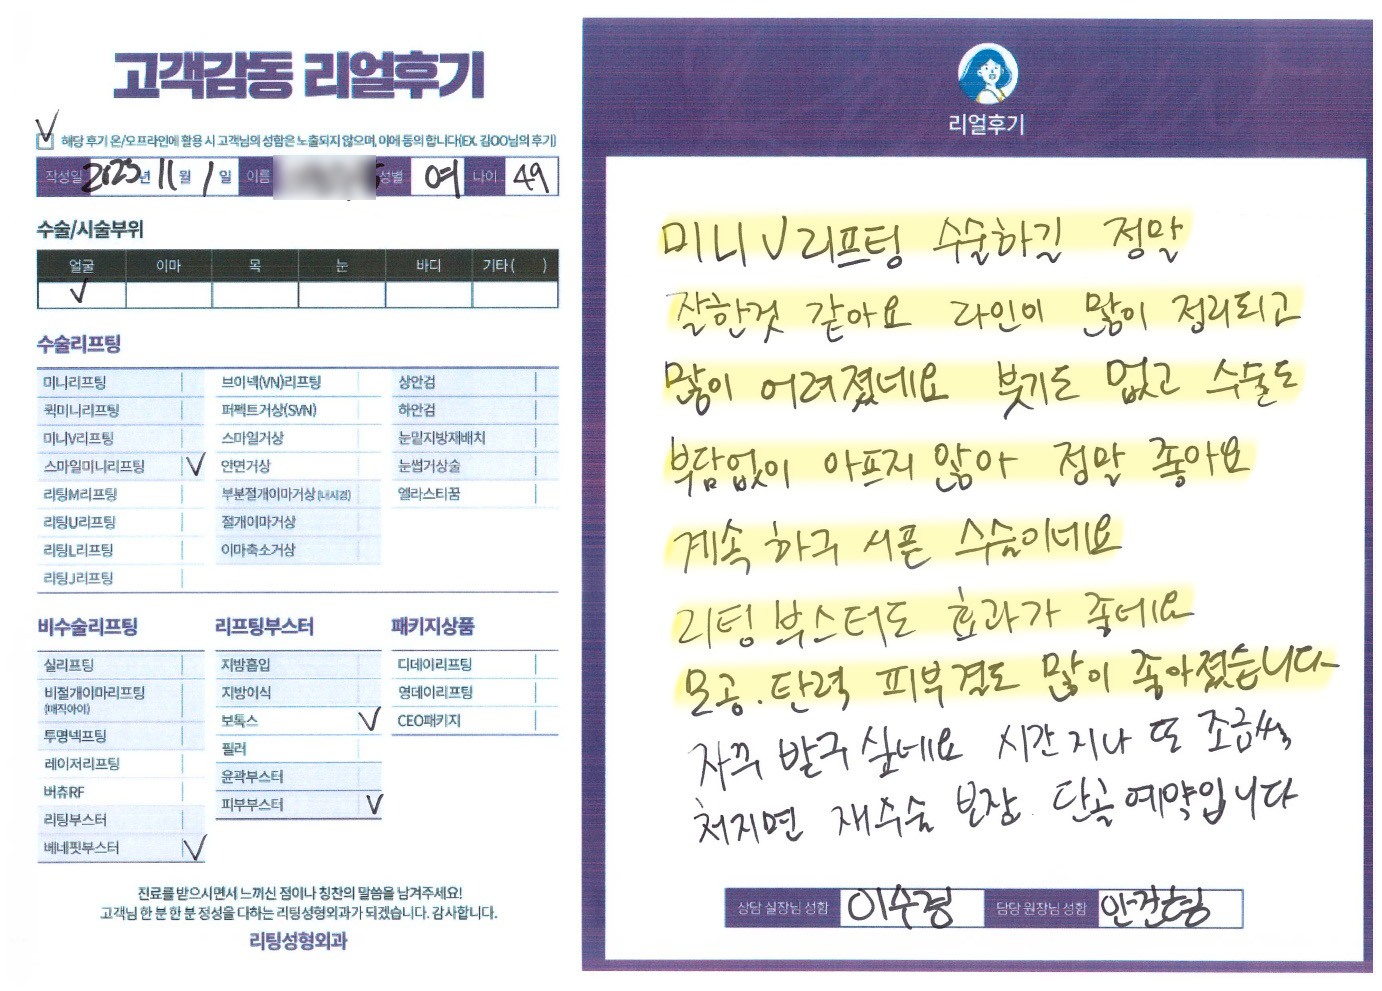 고객감동 리얼후기
해당 후기 온/오프라인에 활용 시 고객님의 성함은 노출되지 않으며, 이에 동의 합니다(EX. 김OO님의 후기)
작성일 2025년 11월 1일 이름 성별 여 나이 49
수술/시술부위
얼굴 이마 목 눈 바디 기타( )
수술리프팅
미니리프팅 브이넥(VN)리프팅 상안검
퀵미니리프팅 퍼펙트거상(SVN) 하안검
미니V리프팅 스마일거상 눈밑지방재배치
스마일미니리프팅 안면거상 눈썹거상술
리팅M리프팅 부분절개이마거상(내시경) 엘라스티꿈
리팅U리프팅 절개이마거상
리팅L리프팅 이마축소거상
리팅J리프팅
비수술리프팅 리프팅부스터 패키지상품
실리프팅 지방흡입 디데이리프팅
비절개이마리프팅 지방이식 영데이리프팅
(매직아이)
투명넥프팅 보톡스 CEO패키지
레이저리프팅 필러
버츄RF 윤곽부스터
리팅부스터 피부부스터
베네핏부스터
진료를 받으시면서 느끼신 점이나 칭찬의 말씀을 남겨주세요!
고객님 한 분 한 분 정성을 다하는 리팅성형외과가 되겠습니다. 감사합니다.
리팅성형외과
리얼후기
미니V리프팅 수술하길 정말
잘한것 같아요 라인이 많이 정리되고
많이 어려졌네요 붓기도 없고 수술도
부담없이 아프지 않아 정말 좋아요
계속 하구 서픈 수숨이네요
리팅 부스터도 효과가 좋네요
모공.탄력 피부결도 많이 좋아졌습니다
자꾸 받구 싶네요 시간지나 또 조금씩
처지면 재수숨 보장 단골예약입니다
상담 실장님 성함 이수경 담당 원장님 성함 안건형